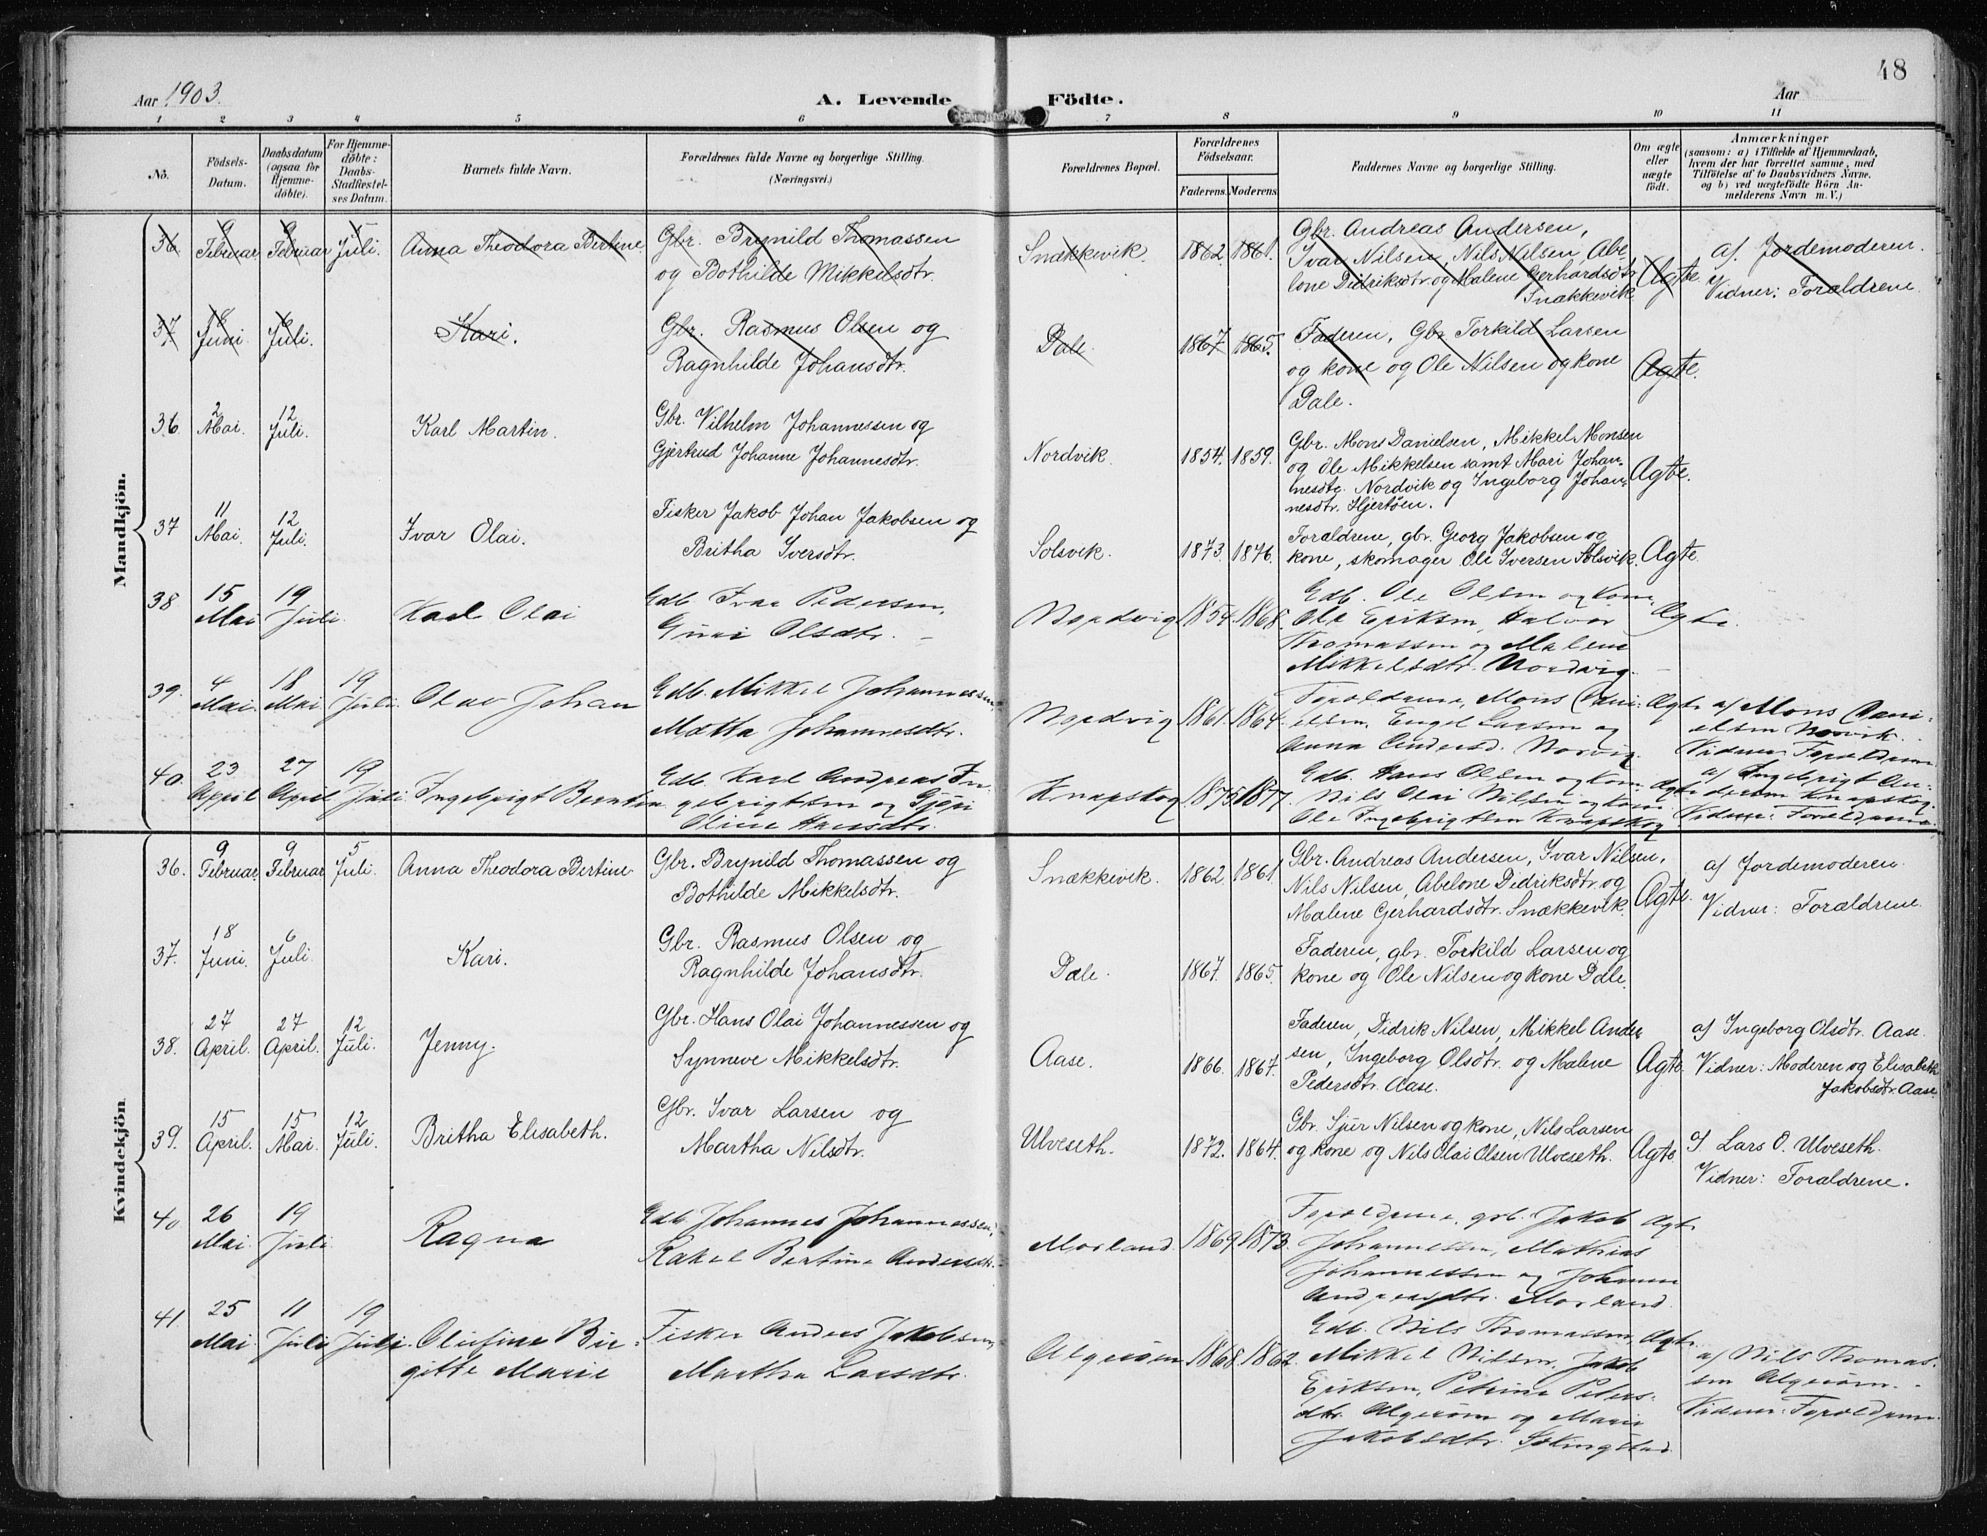 48
Aar 1903. A. Levende Födte. Aar
1 2 3 4 5 6 7 8 9 10 11
No. Födsels-Datum. Daabsdatum (ogsaa for Hjemmedöbte). For Hjemmedöbte: Daabs-Stadfæstelses Datum. Barnets fulde Navn. Forældrenes fulde Navne og borgerlige Stilling. (Næringsvei.) Forældrenes Bopæl. Forældrenes Födselsaar. Faderens. Moderens. Faddernes Navne og borgerlige Stilling. Om ægte eller uægte födt. Anmærkninger (saasom: a) i Tilfælde af Hjemmedaab, hvem der har forrettet samme, med Tilföielse af to Daabsvidners Navne. og b) ved uægtefödte Börn Anmelderens Navn m. V.)
Mandkjön.
36 9 Februar 9 Februar 5 Juli. Anna Theodora Bertine Gbr. Brynild Thomassen
og Bothilde Mikkelsdtr. Snækkevik. 1862 1861. Gbr. Andreas Andersen,
Ivar Nilsen, Nils Nilsen, Abe
lone Didriksdtr og Malene Gerhardsdtr
Snækkevik Ægte. af Jordemoderen.
Vidner: Forældrene.
37 18 Juni 6 Juli. Kari. Gbr. Rasmus Olsen og
Ragnhilde Johansdtr. Dale. 1867 1865. Faderen, Gbr Torkild Larsen
og kone og Ole Nilsen og kone
Dale. Ægte.
36. 2 Mai. 12 Juli. Karl Martin. Gbr. Vilhelm Johannessen og
Gjertrud Johanne Johannesdtr. Nordvik. 1854. 1859. Gbr. Mons Danielsen, Mikkel Monsen
og Ole Mikkelsen samt Mari Johan-
nesdtr. Nordvik og Ingeborg Johan-
nesdtr. Hjertöen. Ægte.
37 11 Mai. 12 Juli. Ivar Olai. Fisker Jakob Johan Jakobsen og
Britha Iversdtr. Solsvik. 1873. 1876. Forældrene, gbr. Georg Jakobsen og
kone, skomager Ole Iversen Solsvik. Ægte.
38 15 Mai 19 Juli. Karl Olai Gdb. Ivar Pedersen,
Guri Olsdtr. Nordvig 1854. 1868. Gdb. Ole Olsen og kone,
Ole Eriksen, Halvor
Thomassen og Malene
Mikkelsdtr. Nordvig. Ægte.
39. 4 Mai. 18 Mai 19 Juli. Olav Johan Gdb. Mikkel Johannessen,
Matta Johannesdtr. Nordvig 1861. 1864. Forældrene, Mons Dani-
elsen, Engel Larsen og
Anna Andersd. Norvig. Ægte af Mons Dani-
elsen Norvik.
Vidner: Forældrene
40. 23 April 27 April 19 Juli. Ingebrigt Berntin Gdb. Karl Andreas In-
gebrigtsen og Gjöri
Oline Hansdtr. Knapskog 1875 1877. Gdb. Hans Olsen og kone
Nils Olai Nilsen og kone
Ole Ingebrigtsen Knapskog Ægte af Ingebrigt An-
dersen Knapskog.
Vidner: Forældrene
Kvindekjön
36. 9 Februar. 9 Februar 5 Juli. Anna Theodora Bertine Gbr. Brynild Thomassen og
Bothilde Mikkelsdtr. Snækkevik. 1862. 1861. Gbr. Andreas Andersen, Ivar Nilsen,
Nils Nilsen, Abelone Didriksdtr og
Malene Gerhardsdtr. Snækkevik. Ægte. af Jordemoderen.
Vidner: Forældrene.
37. 18 Juni. 6 Juli. Kari. Gbr. Rasmus Olsen og
Ragnhilde Johansdtr. Dale. 1867. 1865. Faderen, gbr. Torkild Larsen og
kone og Ole Nilsen og kone Dale.
38. 27 April. 27 April. 12 Juli. Jenny. Gbr. Hans Olai Johannessen og
Synneve Mikkelsdtr. Aase. 1866. 1867. Faderen, Didrik Nilsen, Mikkel Ander
sen, Ingeborg Olsdtr. og Malene
Pedersdtr. Aase. Ægte. af Ingeborg Olsdtr. Aase.
Vidner: Moderen og Elisabeth
Jakobsdtr. Aase.
39. 15 April. 15 Mai. 12 Juli. Britha Elisabeth. Gbr. Ivar Larsen og
Martha Nilsdtr. Ulveseth. 1872. 1864. Gbr. Sjur Nilsen og kone, Nils Larsen
og kone og Nils Olai Olsen Ulveseth. Ægte. af Lars O. Ulveseth.
Vidner: Forældrene.
40 26 Mai. 19 Juli Ragna Gdb Johannes Johannessen,
Rakel Bertine Andersdtr. Morland 1869 1873. Forældrene, grb. Jakob
Johannessen, Mathias
Johannessen og Johanna
Andreasdtr. Morland. Ægte
41 25 Mai. 11 Juli 19 Juli. Olufine Bir-
gitte Marie Fisker Anders Jakobsen,
Martha Larsdtr. Algeröen 1868. 1862. Gdb. Nils Thomassen,
Mikkel Nilsen, Jakob
Eriksen, Petrine Peters-
dtr. Algeröen og Marie
Jakobsdtr. Ægte. af Nils Thomas-
sen Algeröen.
Vidner: Forældrene.